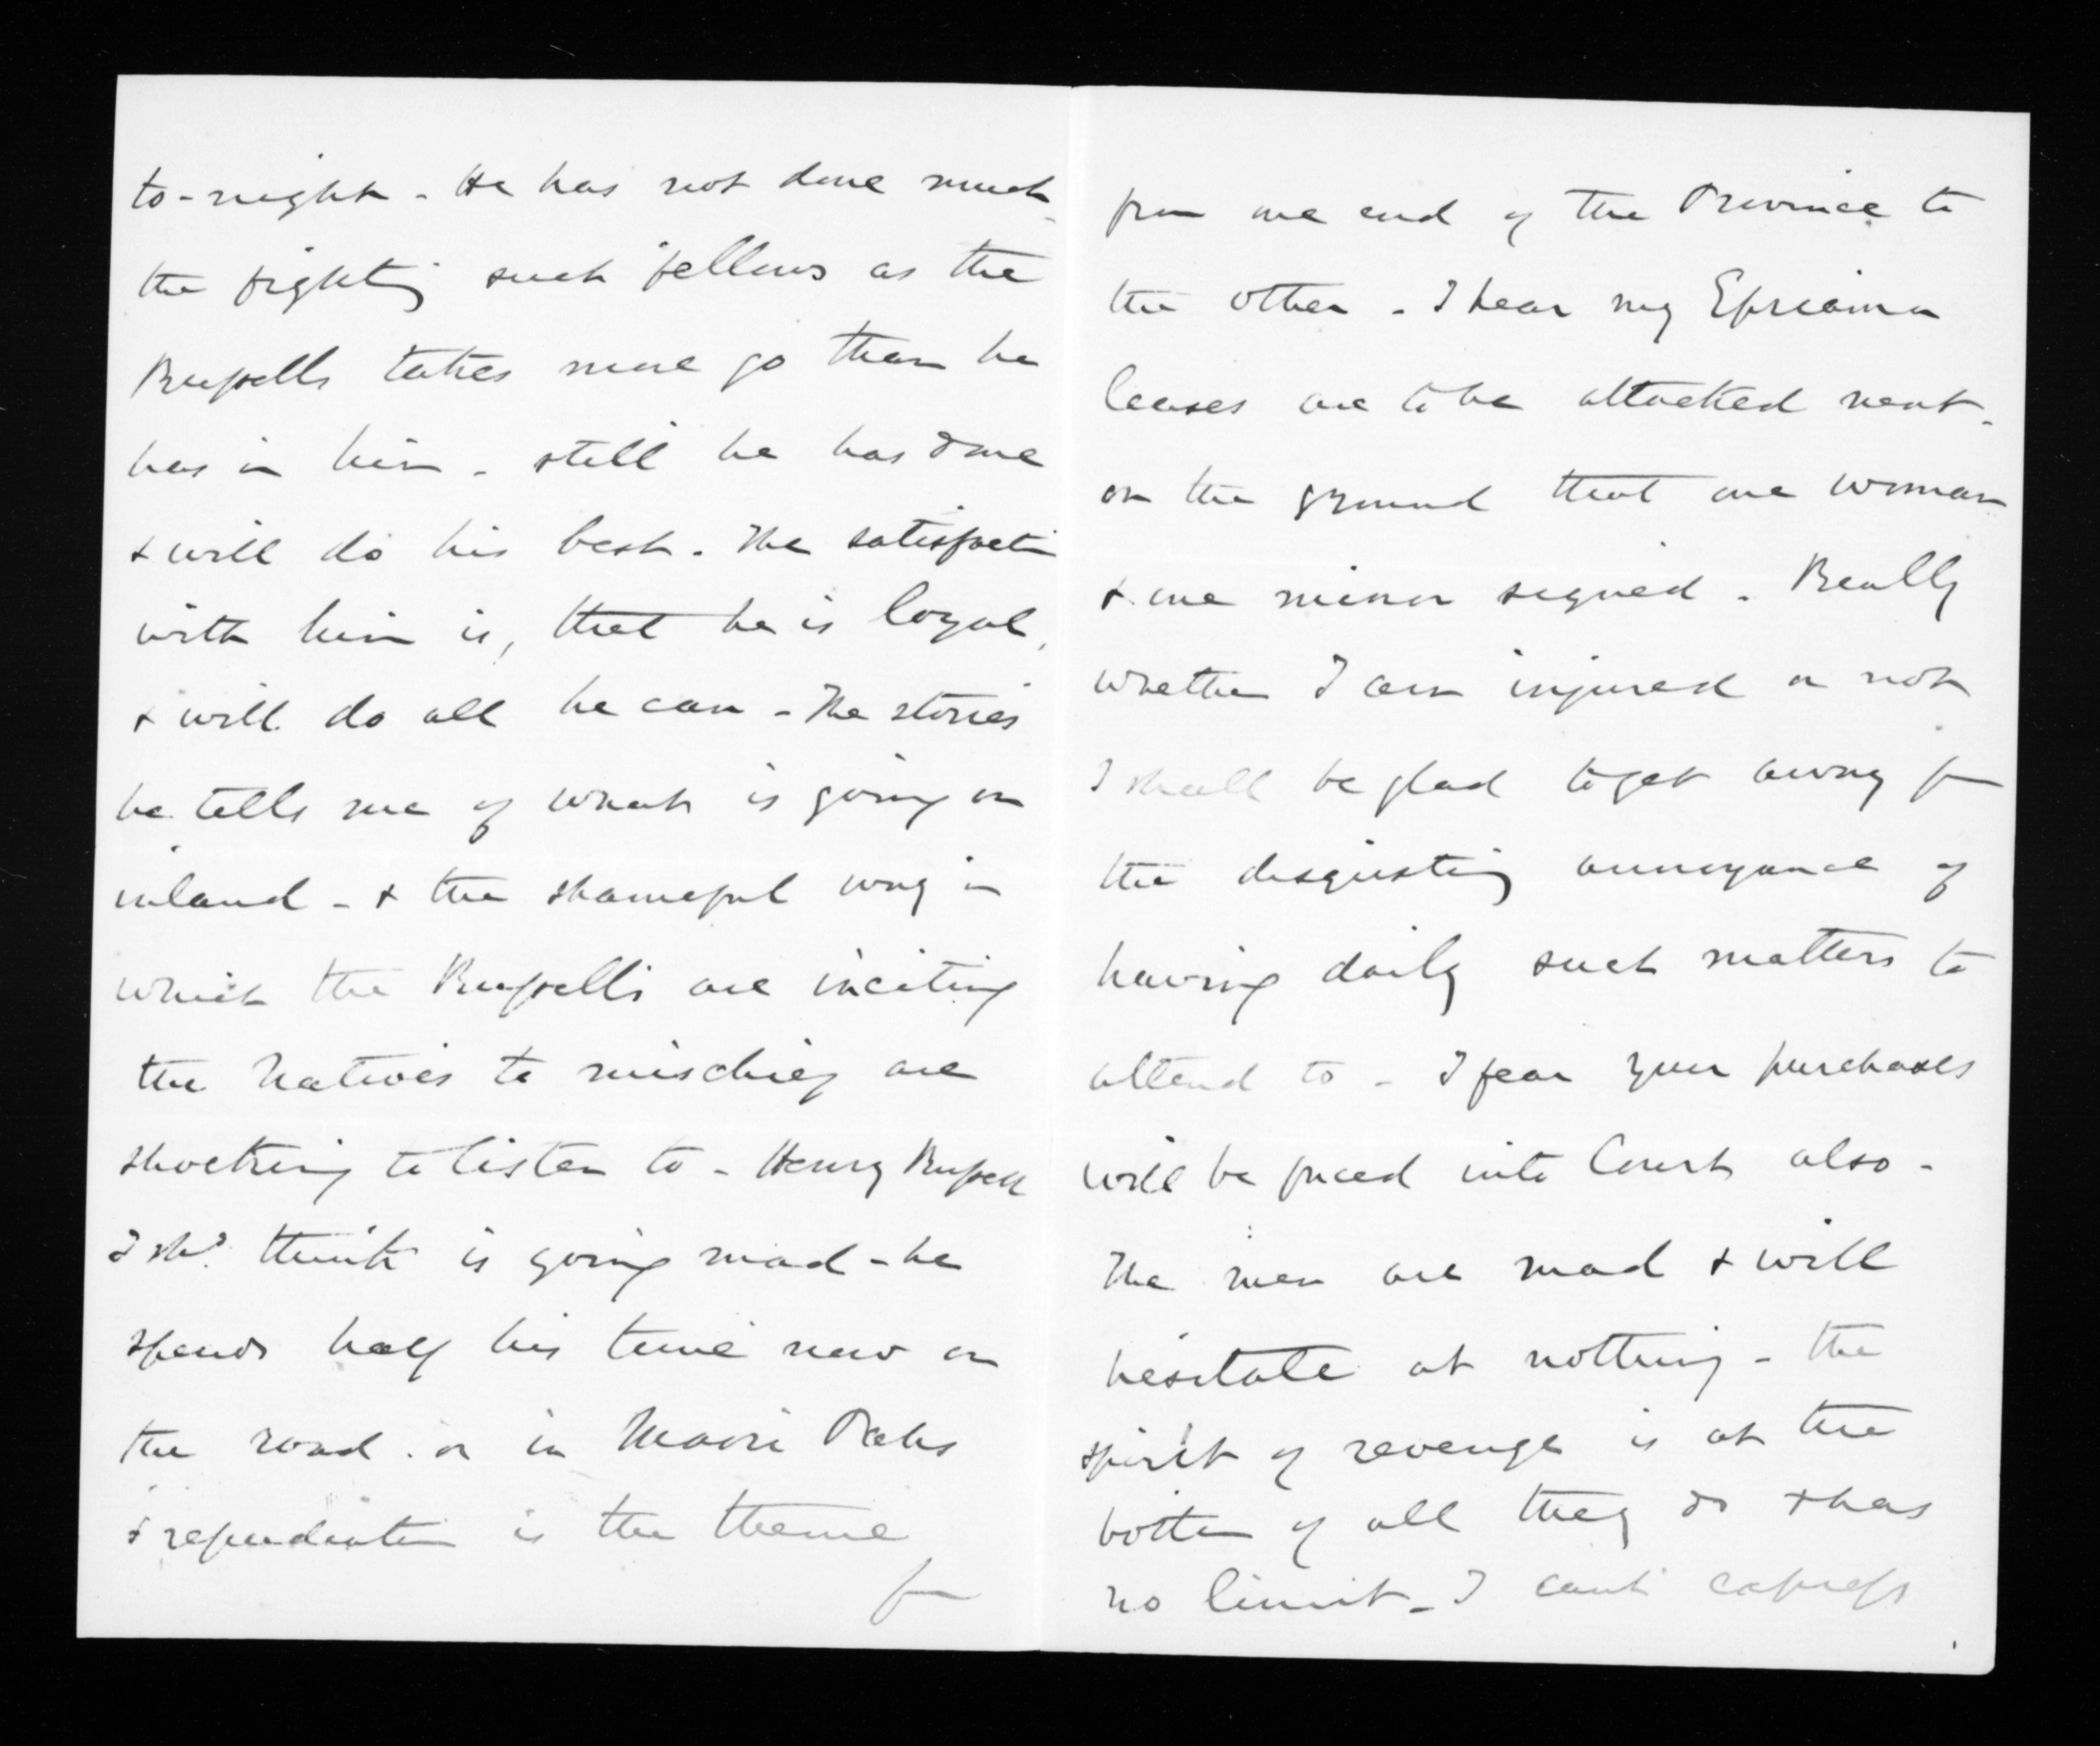 to-night - He has not done much
the fighting such fellows as the
Russells takes more go than he
has in him - still he has done
& will do his best. The satisfaction
with him is, that he is loyal,
& will do all he can - The stories
he tells me of what is going on
inland - & the shameful way in
which the Russells are inciting
the Natives to mischief are
shocking to listen to - Henry Russell
I shd. think is going mad - he
spends half his time now on
the road . or in Maori Pahs
& repudiation is the theme
from
from one end of the Province to
the other - I hear my
leases are to be attacked next -
on the ground that one woman
& one minor signed . Really
whether I am injured or not
I shall be glad to get away from
the disgusting annoyance of
having daily such matters to
attend to - I fear your purchases
will be forced into Court also -
The men are mad & will
hesitate at nothing - the
spirit of revenge is at the
bottom of all they do & has
no limit - I can't express